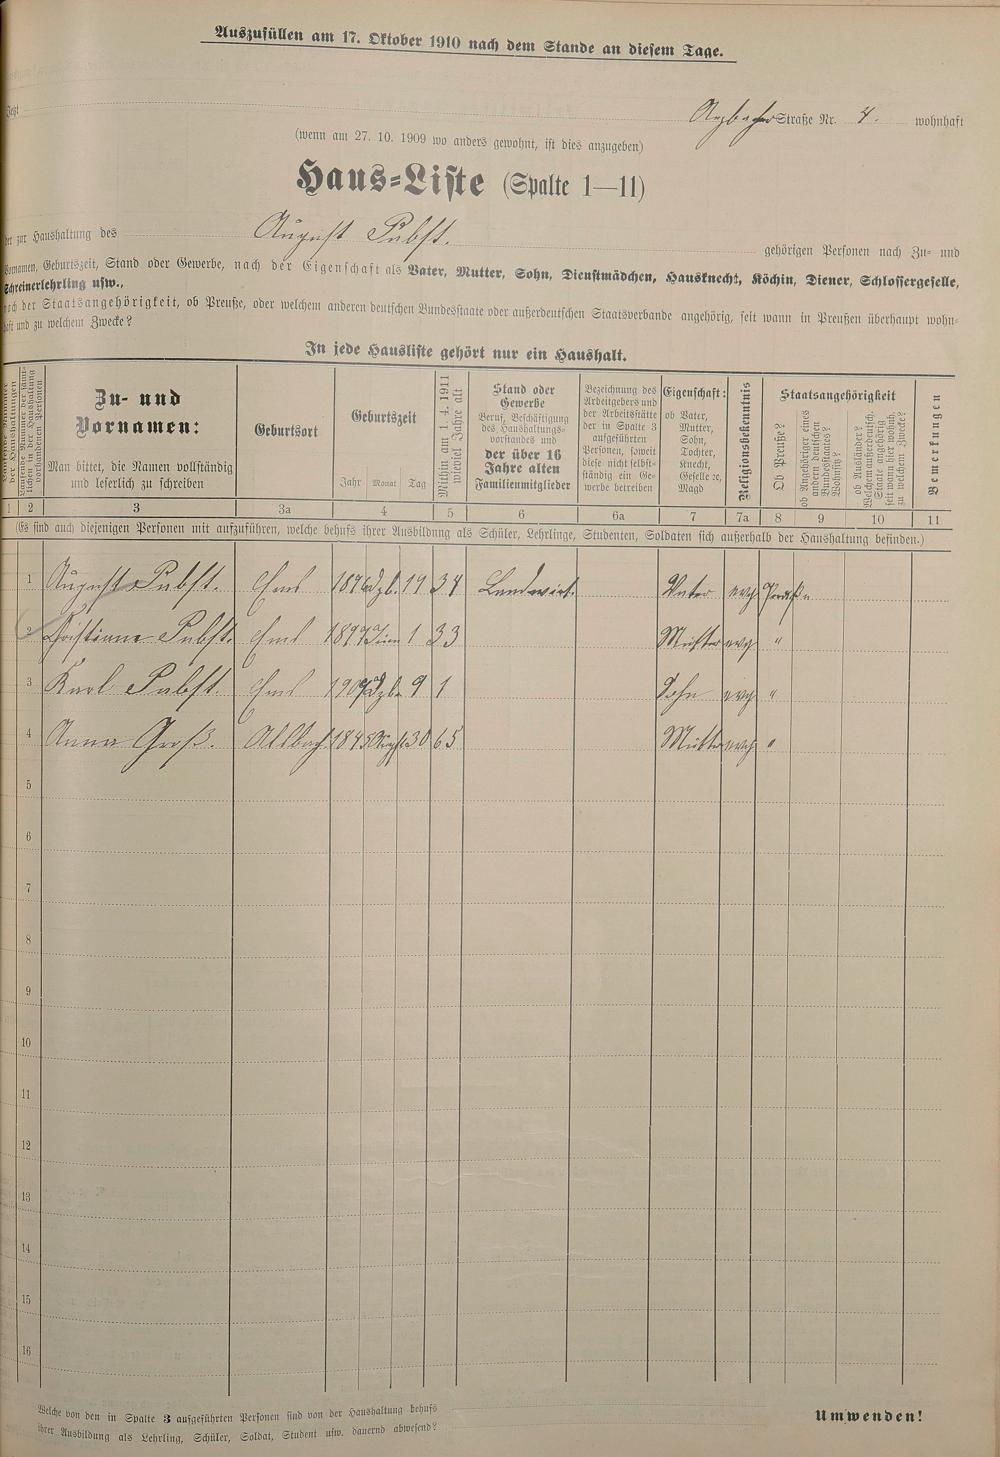 Auszufüllen am 17. Oktober 1910 nach dem Stande an diesem Tage.
Jetzt Straße Nr. 4. wohnhaft
(wenn am 27. 10. 1909 wo anders gewohnt, ist dies anzugeben)
Haus-Liste (Spalte 1—11)
der zur Haushaltung des August Pabst. gehörigen Personen nach Zu- und
Vornamen, Geburtszeit, Stand oder Gewerbe, nach der Eigenschaft als Vater, Mutter, Sohn, Dienstmädchen, Hausknecht, Köchin, Diener, Schlossergeselle,
Schreinerlehrling usw.,
nach der Staatsangehörigkeit, ob Preuße, oder welchem anderen deutschen Bundesstaate oder außerdeutschen Staatsverbande angehörig, seit wann in Preußen überhaupt wohn-
haft und zu welchem Zwecke?
In jede Hausliste gehört nur ein Haushalt.
der Haushaltungen
Laufende Nummer der sämt-
lichen in der Haushaltung
vorhandenen Personen
Zu- und
Vornamen:
Man bittet, die Namen vollständig
und leserlich zu schreiben
Geburtsort
Geburtszeit
Jahr Monat Tag
Mithin am 1. 4. 1911
wieviel Jahre alt
Stand oder
Gewerbe
Beruf, Beschäftigung
des Haushaltungs-
vorstandes und
der über 16
Jahre alten
Familienmitglieder
Bezeichnung des
Arbeitgebers und
der Arbeitsstätte
der in Spalte 3
aufgeführten
Personen, soweit
diese nicht selbst-
ständig ein Ge-
werbe betreiben
Eigenschaft:
ob Vater,
Mutter,
Sohn,
Tochter,
Knecht,
Geselle ꝛc,
Magd
Religionsbekenntnis
Staatsangehörigkeit
Ob Preuße?
ob Angehöriger eines
andern deutschen
Bundesstaates?
Wohnsitz?
ob Ausländer?
Welchem außerdeutsch.
Staat angehörig
seit wann hier wohnh.
zu welchem Zwecke?
Bemerkungen
1 2 3 3a 4 5 6 6a 7 7a 8 9 10 11
(Es sind auch diejenigen Personen mit aufzuführen, welche behufs ihrer Ausbildung als Schüler, Lehrlinge, Studenten, Soldaten sich außerhalb der Haushaltung befinden.)
1 August Pabst. Ems 1876 Dzb. 19 34 Landwirt. Vater evg Preuße
2 Christiane Pabst. Ems 1877 Juni 1 33 Mutter evg "
3 Karl Pabst. Ems 1909 Dzb. 9 1 Sohn evg "
4 Anna Groß. 1845 30 65 Mutter evg "
5
6
7
8
9
10
11
12
13
14
15
16
Welche von den in Spalte 3 aufgeführten Personen sind von der Haushaltung behufs
ihrer Ausbildung als Lehrling, Schüler, Soldat, Student usw. dauernd abwesend?
Umwenden!